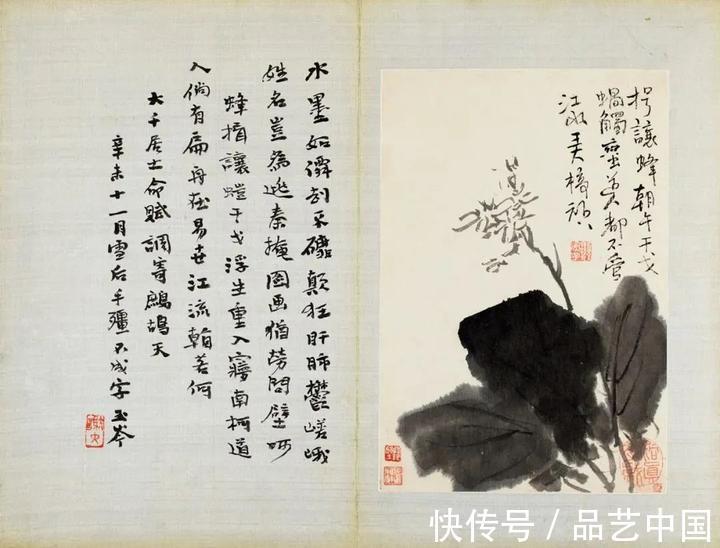 水墨如刻不顛狂肝肺鬱嵯峨
姓名豈為逃秦掩圖畫猶勞問壁呵
蜂揖讓螘干戈浮生重入寱南柯道
人倘有扁舟在易世江流若何
大千居士命賦調寄鷓鴣天
辛未十一月雪后手殭不成字玉岑
揖讓蜂朝午干戈
蝸觸蠻都不管
江
快传号 / 品艺中国